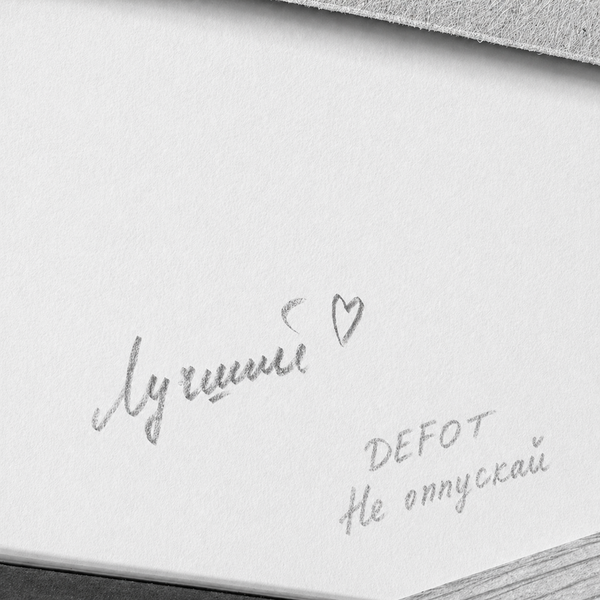 Лучший ♡
DEFOT
Не оппускай